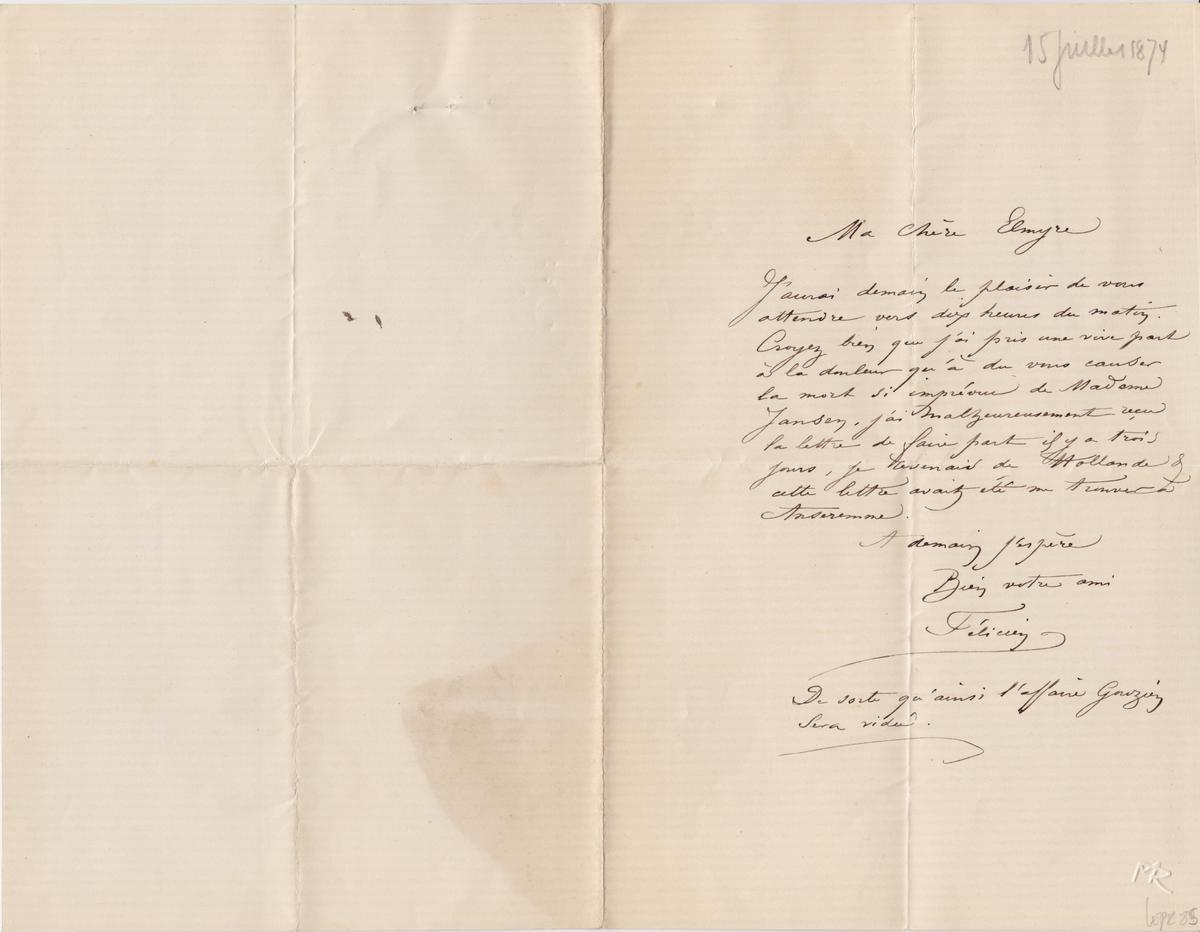 15 juillet 1874
Ma chère Elmyre
J'aurai demain le plaisir de vous
attendre vers dix heures du matin.
Croyez bien que j'ai pris une vive part
à la douleur qu'à du vous causer
la mort si imprévue de Madame
Jansen, j'ai malheureusement reçu
la lettre de faire part il y a trois
jours, je revenais de Hollande &
cette lettre avait été me trouver à
Anseremme.
A demain j'espère
Bien votre ami
Félicien
De sorte qu'ainsi l'affaire Gouzien
sera vidée.
MR